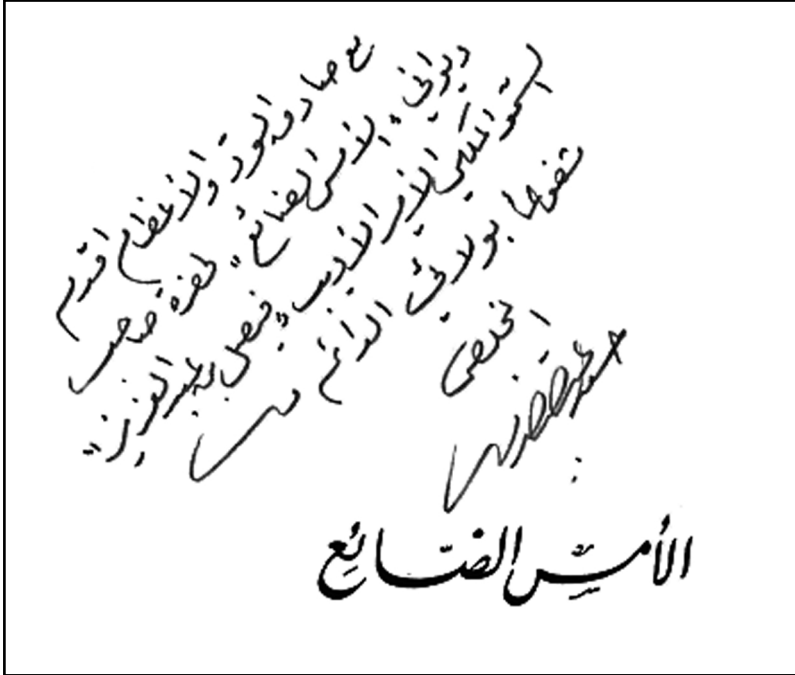 مع صادق المودة اقدم
ديواني "الأمس الضائع" لحضرة صاحب
السمو الملكي الأمير الأديب "فيصل بن عبد العزيز"
بولائي الدائم
المخلص
الأمس الضائع